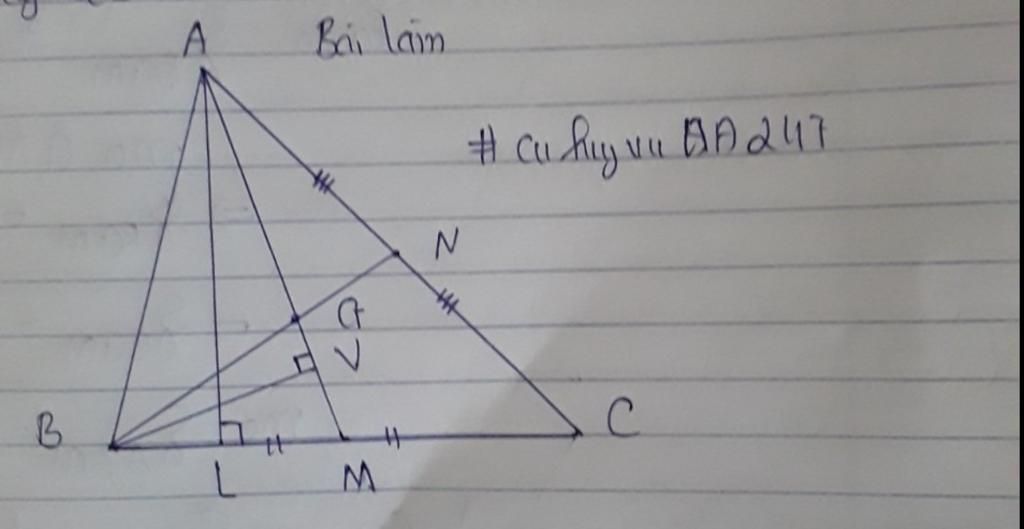 A Bài làm
# cu huy vu AA247
N
G
V
B
C
L M